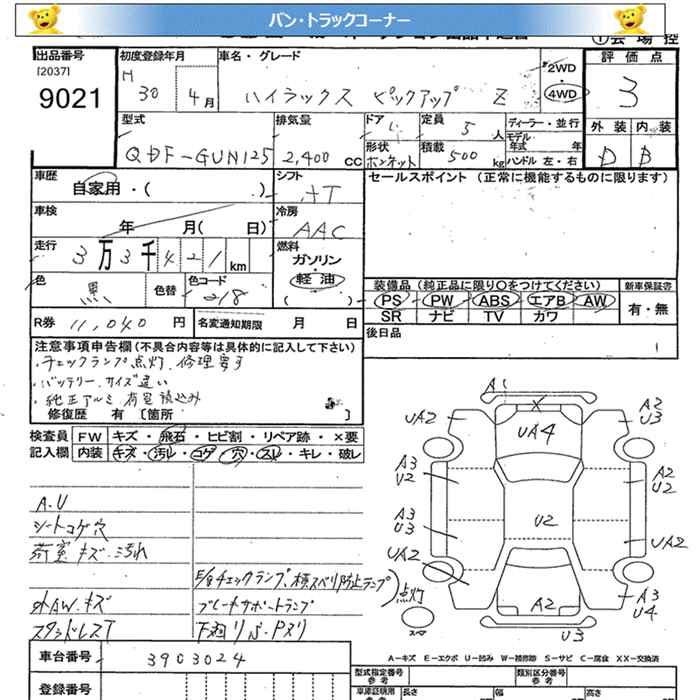 バン・トラックコーナー
出品番号 初度登録年月 車名・グレード 評価点
[2037]
9021 H 30 4月 ハイラックス ピックアップ Z 2WD 4WD 3
型式 排気量 ドア 定員 5人 ディーラー・並行 外装 内装
モデル年式 年
QDF-GUN125 2,400 CC 形状 ボンネット 積載 500 kg ハンドル 左・右 D B
車歴 自家用・( ) シフト AT セールスポイント (正常に機能するものに限ります)
車検 年 月( 日) 冷房 AAC
走行 3万3千421km 燃料 ガソリン・軽油
色 黒 色替 色コード 218 ( )
装備品(純正品に限り○をつけてください) 新車保証書
PS PW ABS エアB AW 有・無
SR ナビ TV カワ
R券 11,040 円 名変通知期限 月 日 後日品
注意事項申告欄(不具合内容等は具体的に記入して下さい)
・チェックランプ点灯 修理要す
・バッテリーサイズ違い
・純正アルミ 荷室積込み
修復歴 有 [箇所 ]
検査員記入欄 FW キズ・飛石・ヒビ割・リペア跡・×要
内装 キズ・汚レ・コゲ・穴・スレ・キレ・破レ
A.U
シートコゲ穴
荷室キズ・汚れ
E/gチェックランプ、横スベリ防止ランプ
外AW.キズ ブレーキサポートランプ 点灯
スタッドレスT 下廻りS・Pヌリ
A1
UA2 X A2 U3
UA4
A3 U2 A2 U2
A3 U3 U2 UA2
UA2
A2 A3 U4
U3
スペア
A=キズ E=エクボ U=凹み W=補修跡 S=サビ C=腐食 XX=交換済
車台番号 3903024 型式指定番号 参考 類別区分番号 参考
登録番号 車庫証明用 参考 長さ 幅 高さ